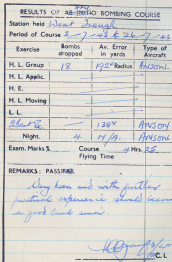 RESULTS OF AB INITIO BOMBING COURSE
Station held West Freugh
Period of Course 2-7-43 to 26-7-43
Exercise Bombs dropped Av. Error in yards Type of Aircraft
H. L. Group 18 192x Radius ANSON
H. L. Applic.
H. E.
H. L. Moving
L. L.
138x ANSON
Night. 4 N/A. ANSON
Exam. Marks % Course Flying Time 4 Hrs. 25
REMARKS: PASS/FAIL
Very keen and with further
practical experience should become
a good bomb aimer.
C. I.